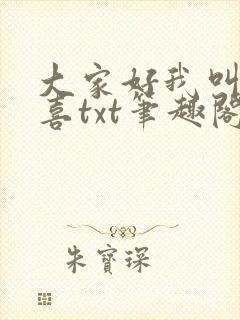 大家好我叫
喜txt笔趣阁
朱宝琛